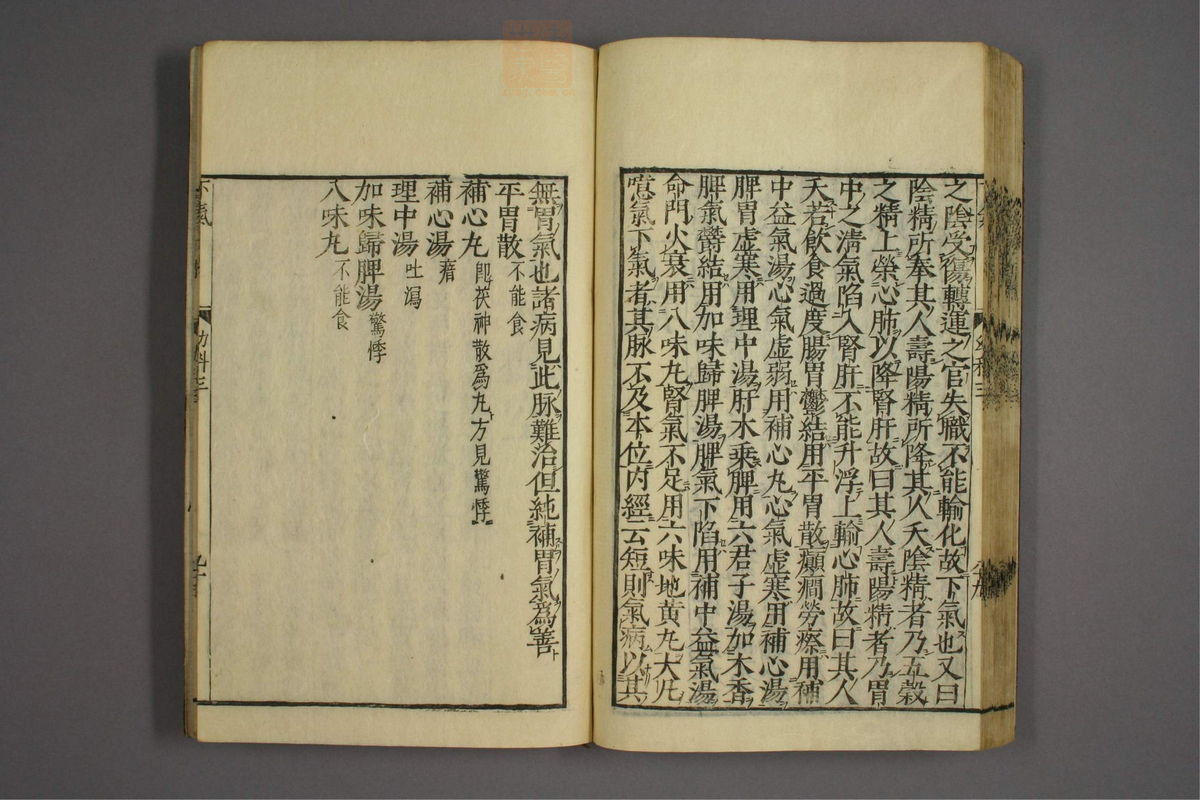 之陰受傷轉運之官失職不能輸化故下氣也又曰
陰精所奉其人壽陽精所降其人夭陰精者乃五穀
之精上榮心肺以降腎肝故曰其人壽陽精者乃胃
中之清氣陷入腎肝不能升浮上輸心肺故曰其人
夭若飲食過度腸胃鬱結用平胃散癲癇勞瘵用補
中益氣湯心氣虛弱用補心丸心氣虛寒用補心湯
脾胃虛寒用理中湯肝木乘脾用六君子湯加木香
脾氣欝結用加味歸脾湯脾氣下陷用補中益氣湯
命門火衰用八味丸腎氣不足用六味地黃丸大凡
噫氣下氣者其脉不及本位內經云短則氣病以其
無胃氣也諸病見此脉難治但純補胃氣為善
平胃散不能食
補心丸卽茯神散為丸方見驚悸
補心湯瘖
理中湯吐瀉
加味歸脾湯驚悸
八味丸不能食
下氣
幼科三